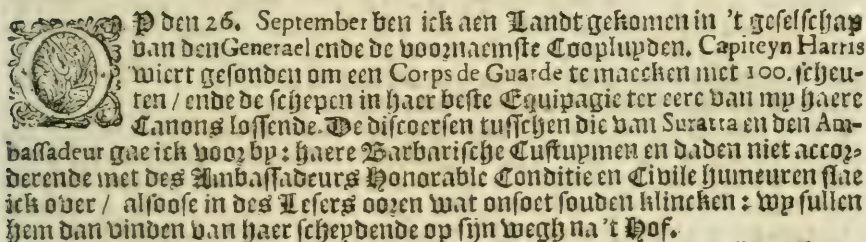 OP den 26. September ben ick aen Landt gekomen in 't geselschap
van den Generael ende de voornaemste Cooplupden. Capiteyn Harris
wiert gesonden om een Corps de Guarde te maecken met 100. scheu-
ten / ende de schepen in haer beste Equipagie ter eere van mp haere
Canons lossende. De discoersen tusschen die van Suratta en den Am-
bassadeur gae ick voor by : haere Barbarische Custupmen en daden niet accor-
derende met des Ambassadeurs Honorable Conditie en Civile humeuren slae
ick over / alsoose in des Lesers ooren wat onsoet souden klincken : wp sullen
hem dan vinden van haer scheydende op sijn wegh na 't Hof.